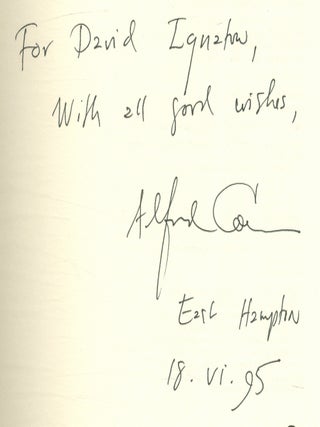 For David Ignatow,
With all good wishes,
Alfred Corn
East Hampton
18.VI.95